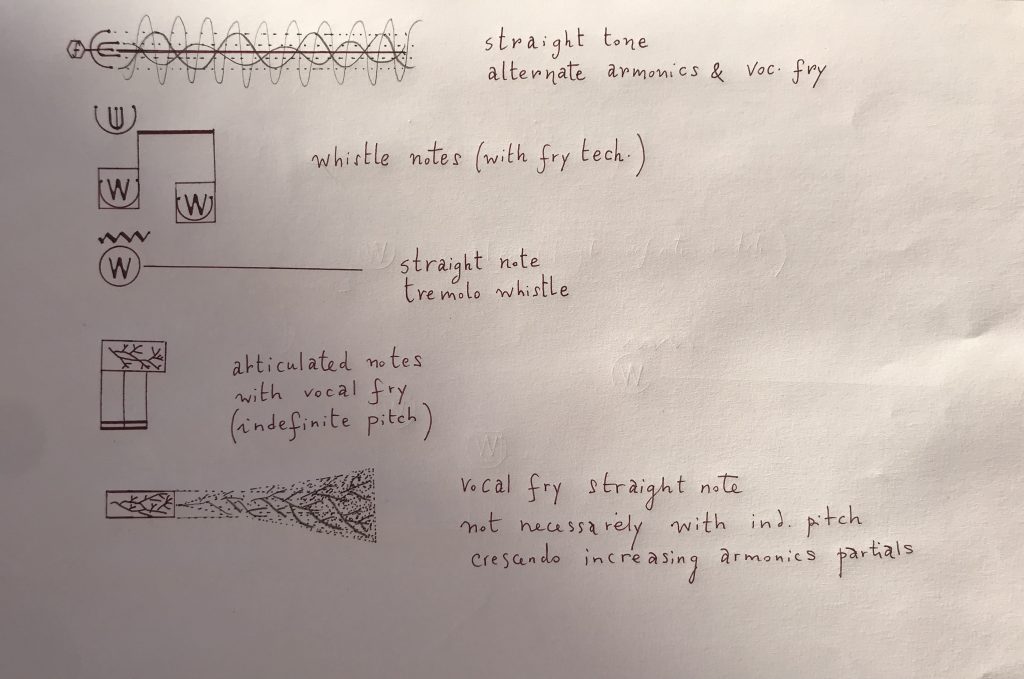 straight tone
alternate armonics & voc. fry
whistle notes (with fry tech.)
W
W
W
straight note
tremolo whistle
articulated notes
with vocal fry
(indefinite pitch)
vocal fry straight note
not necessarely with ind. pitch
crescendo increasing armonics partials